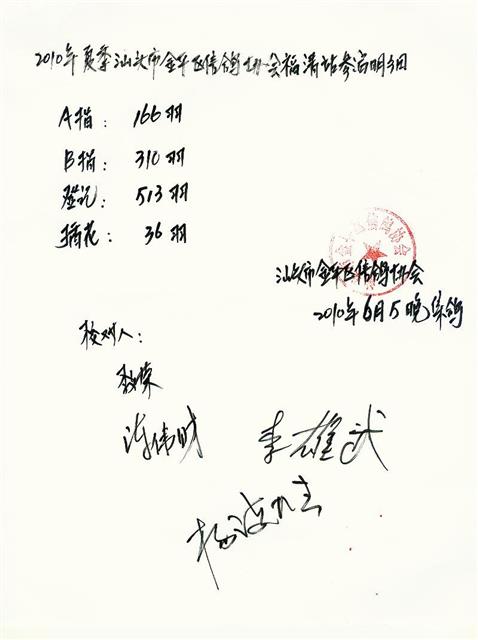 2010年夏季汕头市金平区信鸽协会福清站参赛明细
A指： 166羽
B指： 310羽
登记： 513羽
插花： 36羽
汕头市金平区信鸽协会
2010年6月5晚集鸽
核对人：
陈伟明
李雄武